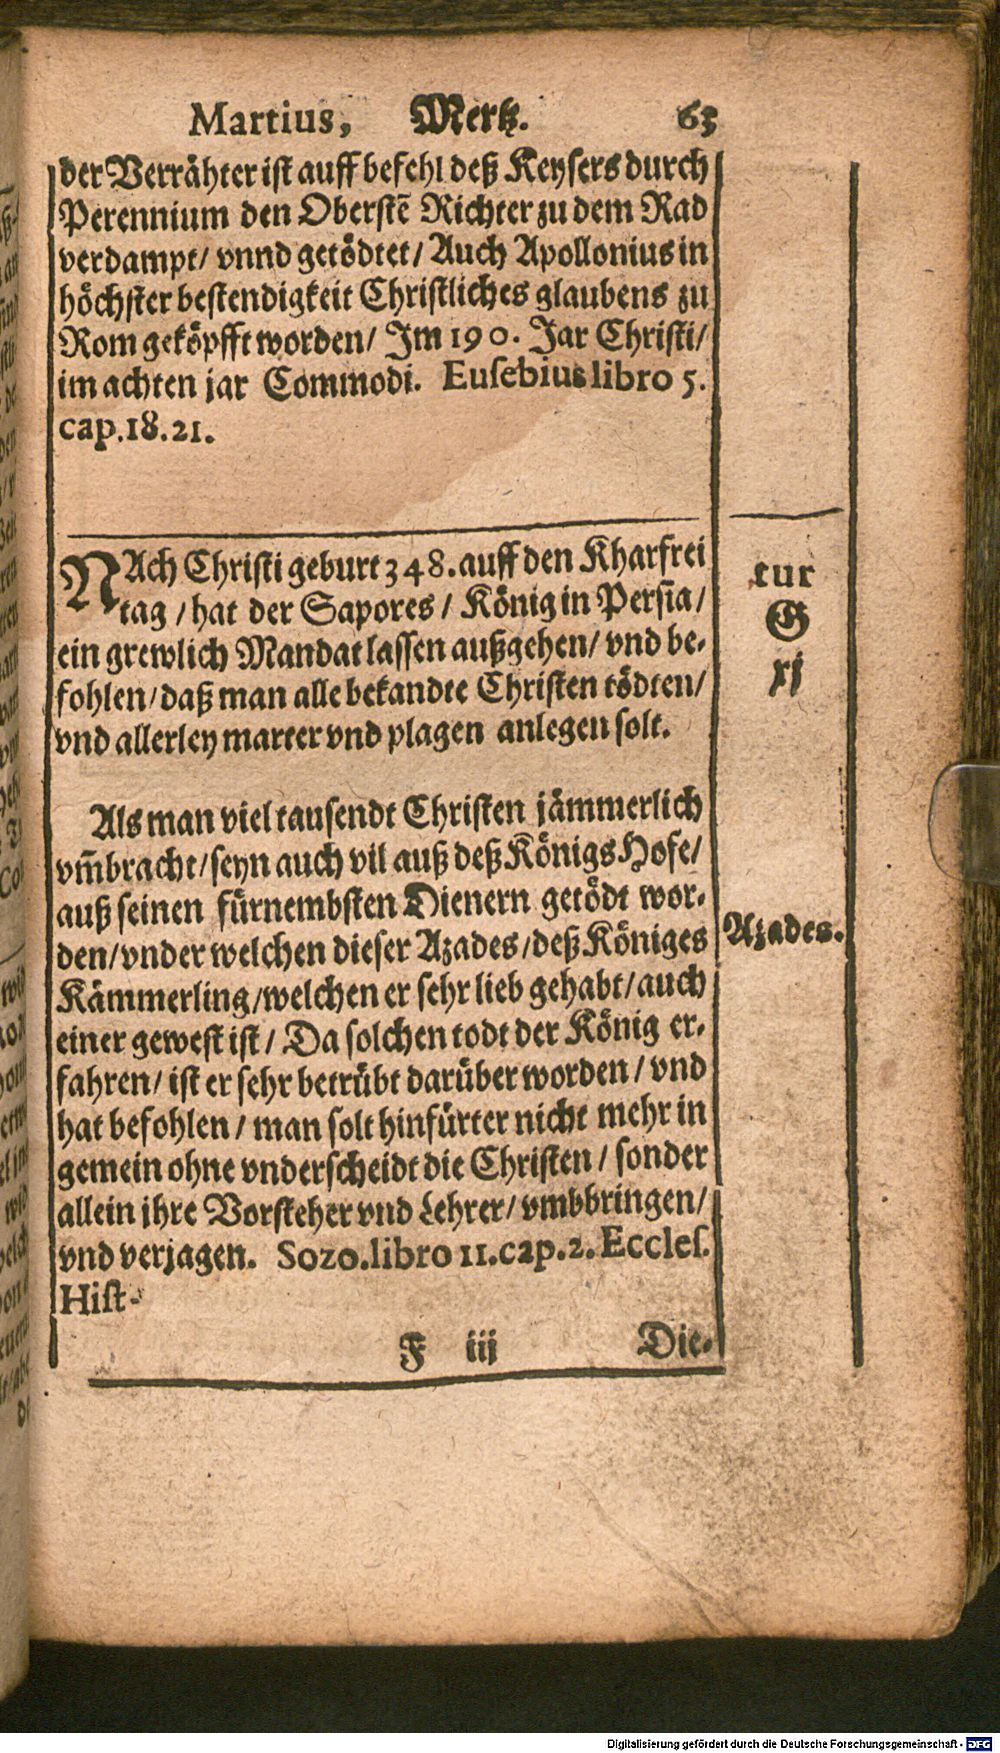 Martius, Mertz. 63
der Verrähter ist auff befehl deß Keysers durch
Perennium den Oberstē Richter zu dem Rad
verdampt/ vnnd getödtet/ Auch Apollonius in
höchster bestendigkeit Christliches glaubens zu
Rom geköpfft worden/ Im 190. Jar Christi/
im achten jar Commodi. Eusebius libro 5.
cap.18.21.
NAch Christi geburt 348. auff den Kharfrei
tag / hat der Sapores / König in Persia/
ein grewlich Mandat lassen außgehen/ vnd be-
fohlen/ daß man alle bekandte Christen tödten/
vnd allerley marter vnd plagen anlegen solt.
cur
G
xj
Als man viel tausendt Christen jämmerlich
vm̄bracht/ seyn auch vil auß deß Königs Hofe/
auß seinen fürnembsten Dienern getödt wor-
den/ vnder welchen dieser Azades/ deß Königes
Azades.
Kämmerling/ welchen er sehr lieb gehabt/ auch
einer gewest ist / Da solchen todt der König er-
fahren/ ist er sehr betrübt darüber worden / vnd
hat befohlen / man solt hinfürter nicht mehr in
gemein ohne vnderscheidt die Christen / sonder
allein ihre Vorsteher vnd Lehrer/ vmbbringen/
vnd verjagen. Sozo.libro 11.cap.2. Eccles.
Hist.
F iii Die-
Digitalisierung gefördert durch die Deutsche Forschungsgemeinschaft - DFG